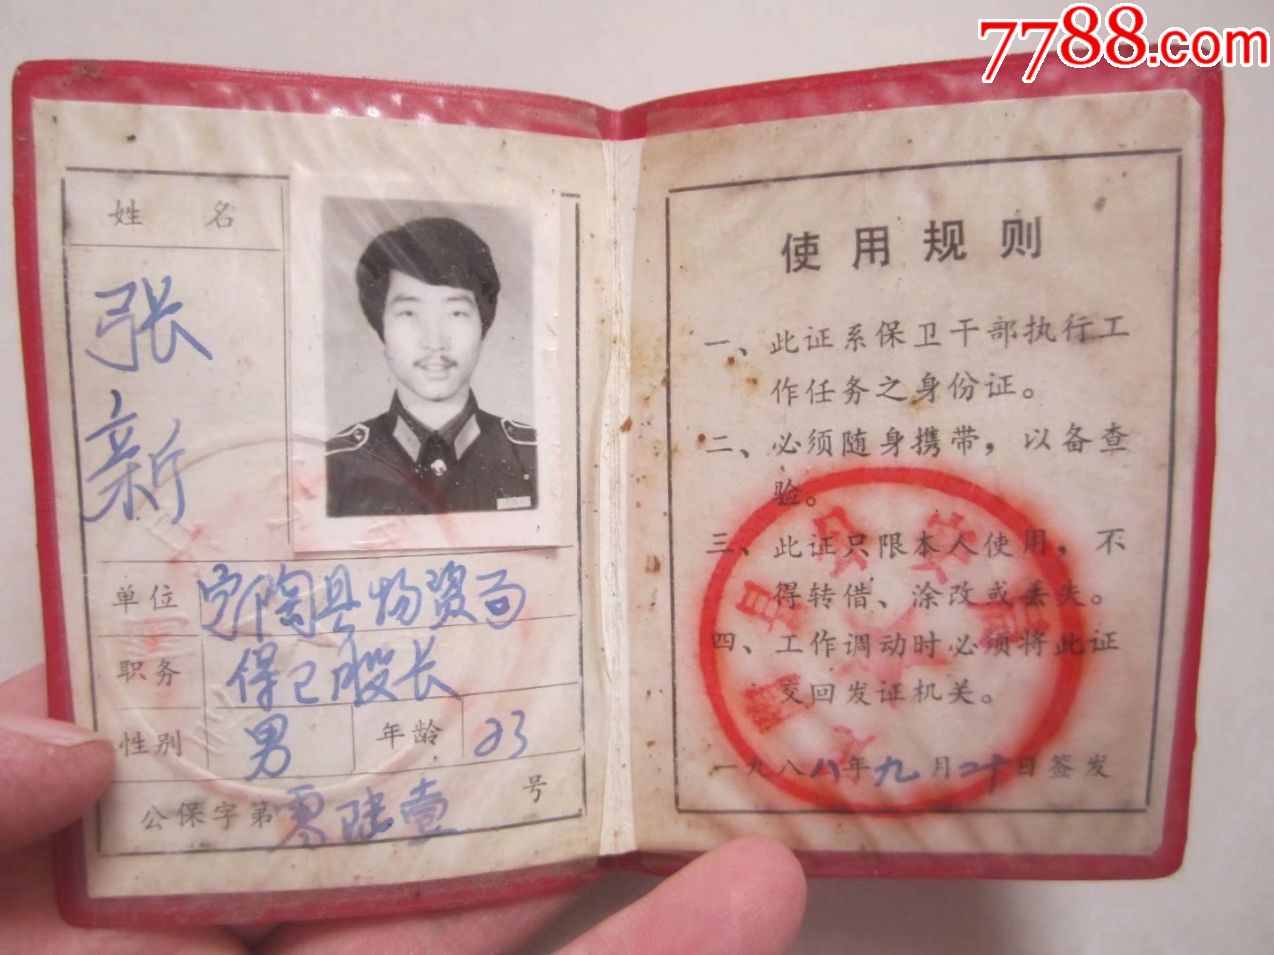 7788.com
姓 名
张
新
单位 定陶县物资局
职务 保卫股长
性别 男 年龄 23
公保字第零陆壹号
使用规则
一、此证系保卫干部执行工
作任务之身份证。
二、必须随身携带，以备查
验。
三、此证只限本人使用，不
得转借、涂改或丢失。
四、工作调动时必须将此证
交回发证机关。
一九八八年九月二十日签发